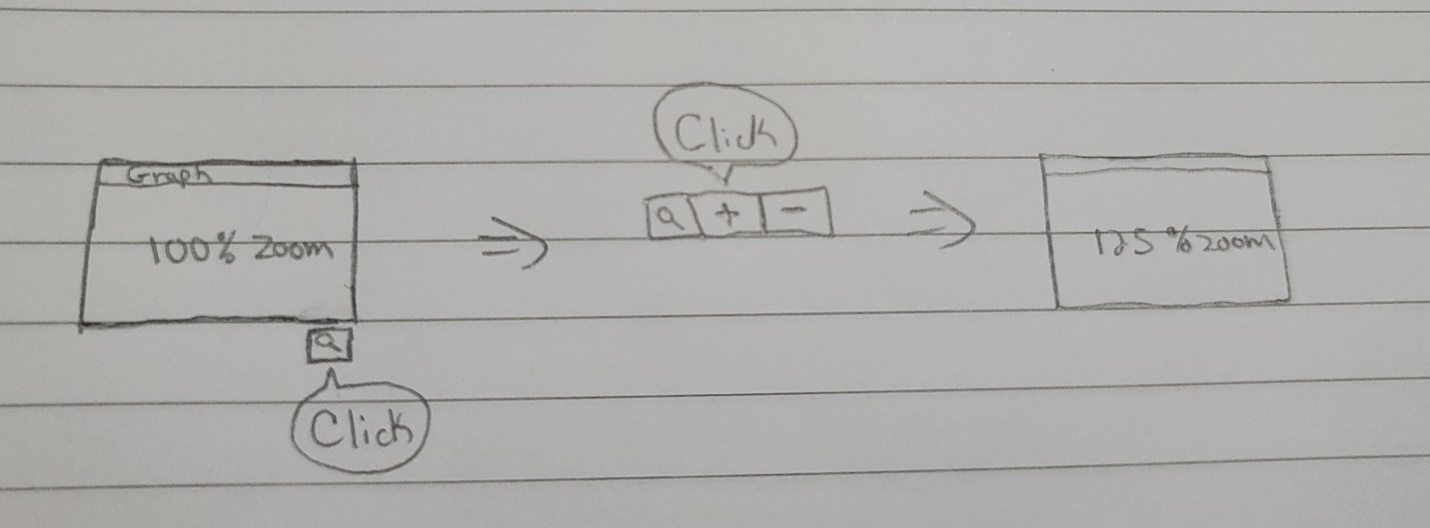 Graph
100% zoom
Click
Click
+ -
125% zoom